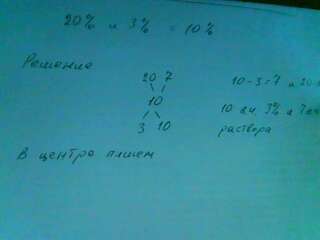 20% и 3% = 10%
Решение
20 7
10
3 10
10-3=7 и 20-
10 вч. 3% и 7
раствора
В центре пишем